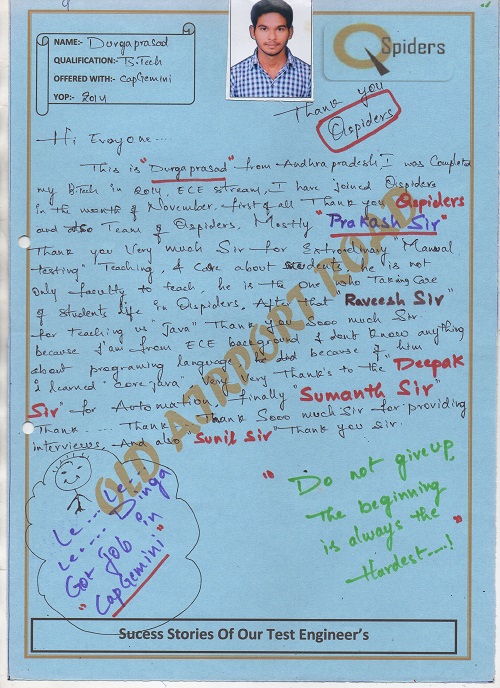 NAME:- Durgaprasad
QUALIFICATION:- B.Tech
OFFERED WITH:- CapGemini
YOP:- 2014
Q Spiders
Thank you
Qspiders
Hi Everyone...
This is "Durgaprasad" from Andhrapradesh I was Completed
my B.Tech in 2014, ECE stream, I have joined Qspiders
in the month of November. first of all Thank you Qspiders
and also Team of Qspiders. Mostly "Prakash Sir"
Thank you Very much Sir for Extraordinary "Manual
testing" Teaching, & care about students, he is not
only faculty to teach, he is the one who Taking Care
of students life in Qspiders. After that "Raveesh Sir"
for teaching us "Java" Thank you Sooo much Sir
because I'am from ECE background I dont know anything
about programing language he did because of him
I learned "core java" Very Very Thank's to the "Deepak
Sir" for Automation, finally "Sumanth Sir"
Thank .... Thank .. Thank Sooo much Sir for providing
interviews. And also "Sunil Sir" Thank you Sir.
OLD AIRPORT ROAD
Le... Le...
Le... Dinga
Got job in
"CapGemini"
"Do not give up
The beginning
is always the
Hardest....!"
Sucess Stories Of Our Test Engineer's